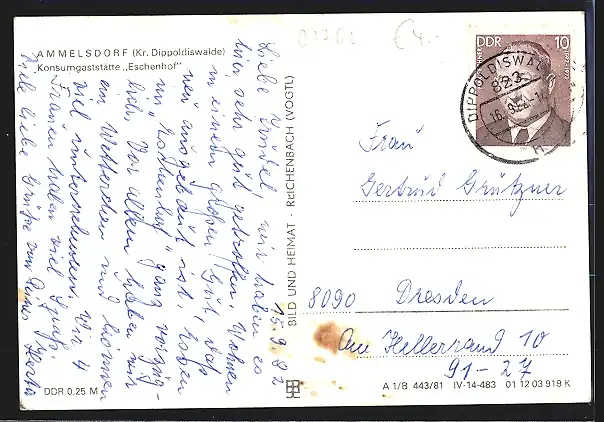 AMMELSDORF (Kr. Dippoldiswalde)
Konsumgaststätte „Eschenhof"
15.9.82
Liebe Trudel, wir haben es
hier sehr gut getroffen. Wohnen
in einem großen Gut, das
neu ausgebaut ist, haben
im "Eschenhof" ganz vorzüg-
lich. Vor allem haben wir
ein Wetterchen und können
viel unternehmen. Wir 4
Frauen haben viel Spaß.
Viele liebe Grüße von Deiner Herta
DDR 0,25 M
BILD UND HEIMAT · REICHENBACH (VOGTL)
01762
€4.-
DDR 10
DIPPOLDISWALDE
823
16.-9.82
Frau
Gertrud Grützner
8090 Dresden
Am Hellerrand 10
91-27
A 1/B 443/81 IV-14-483 01 12 03 919 K